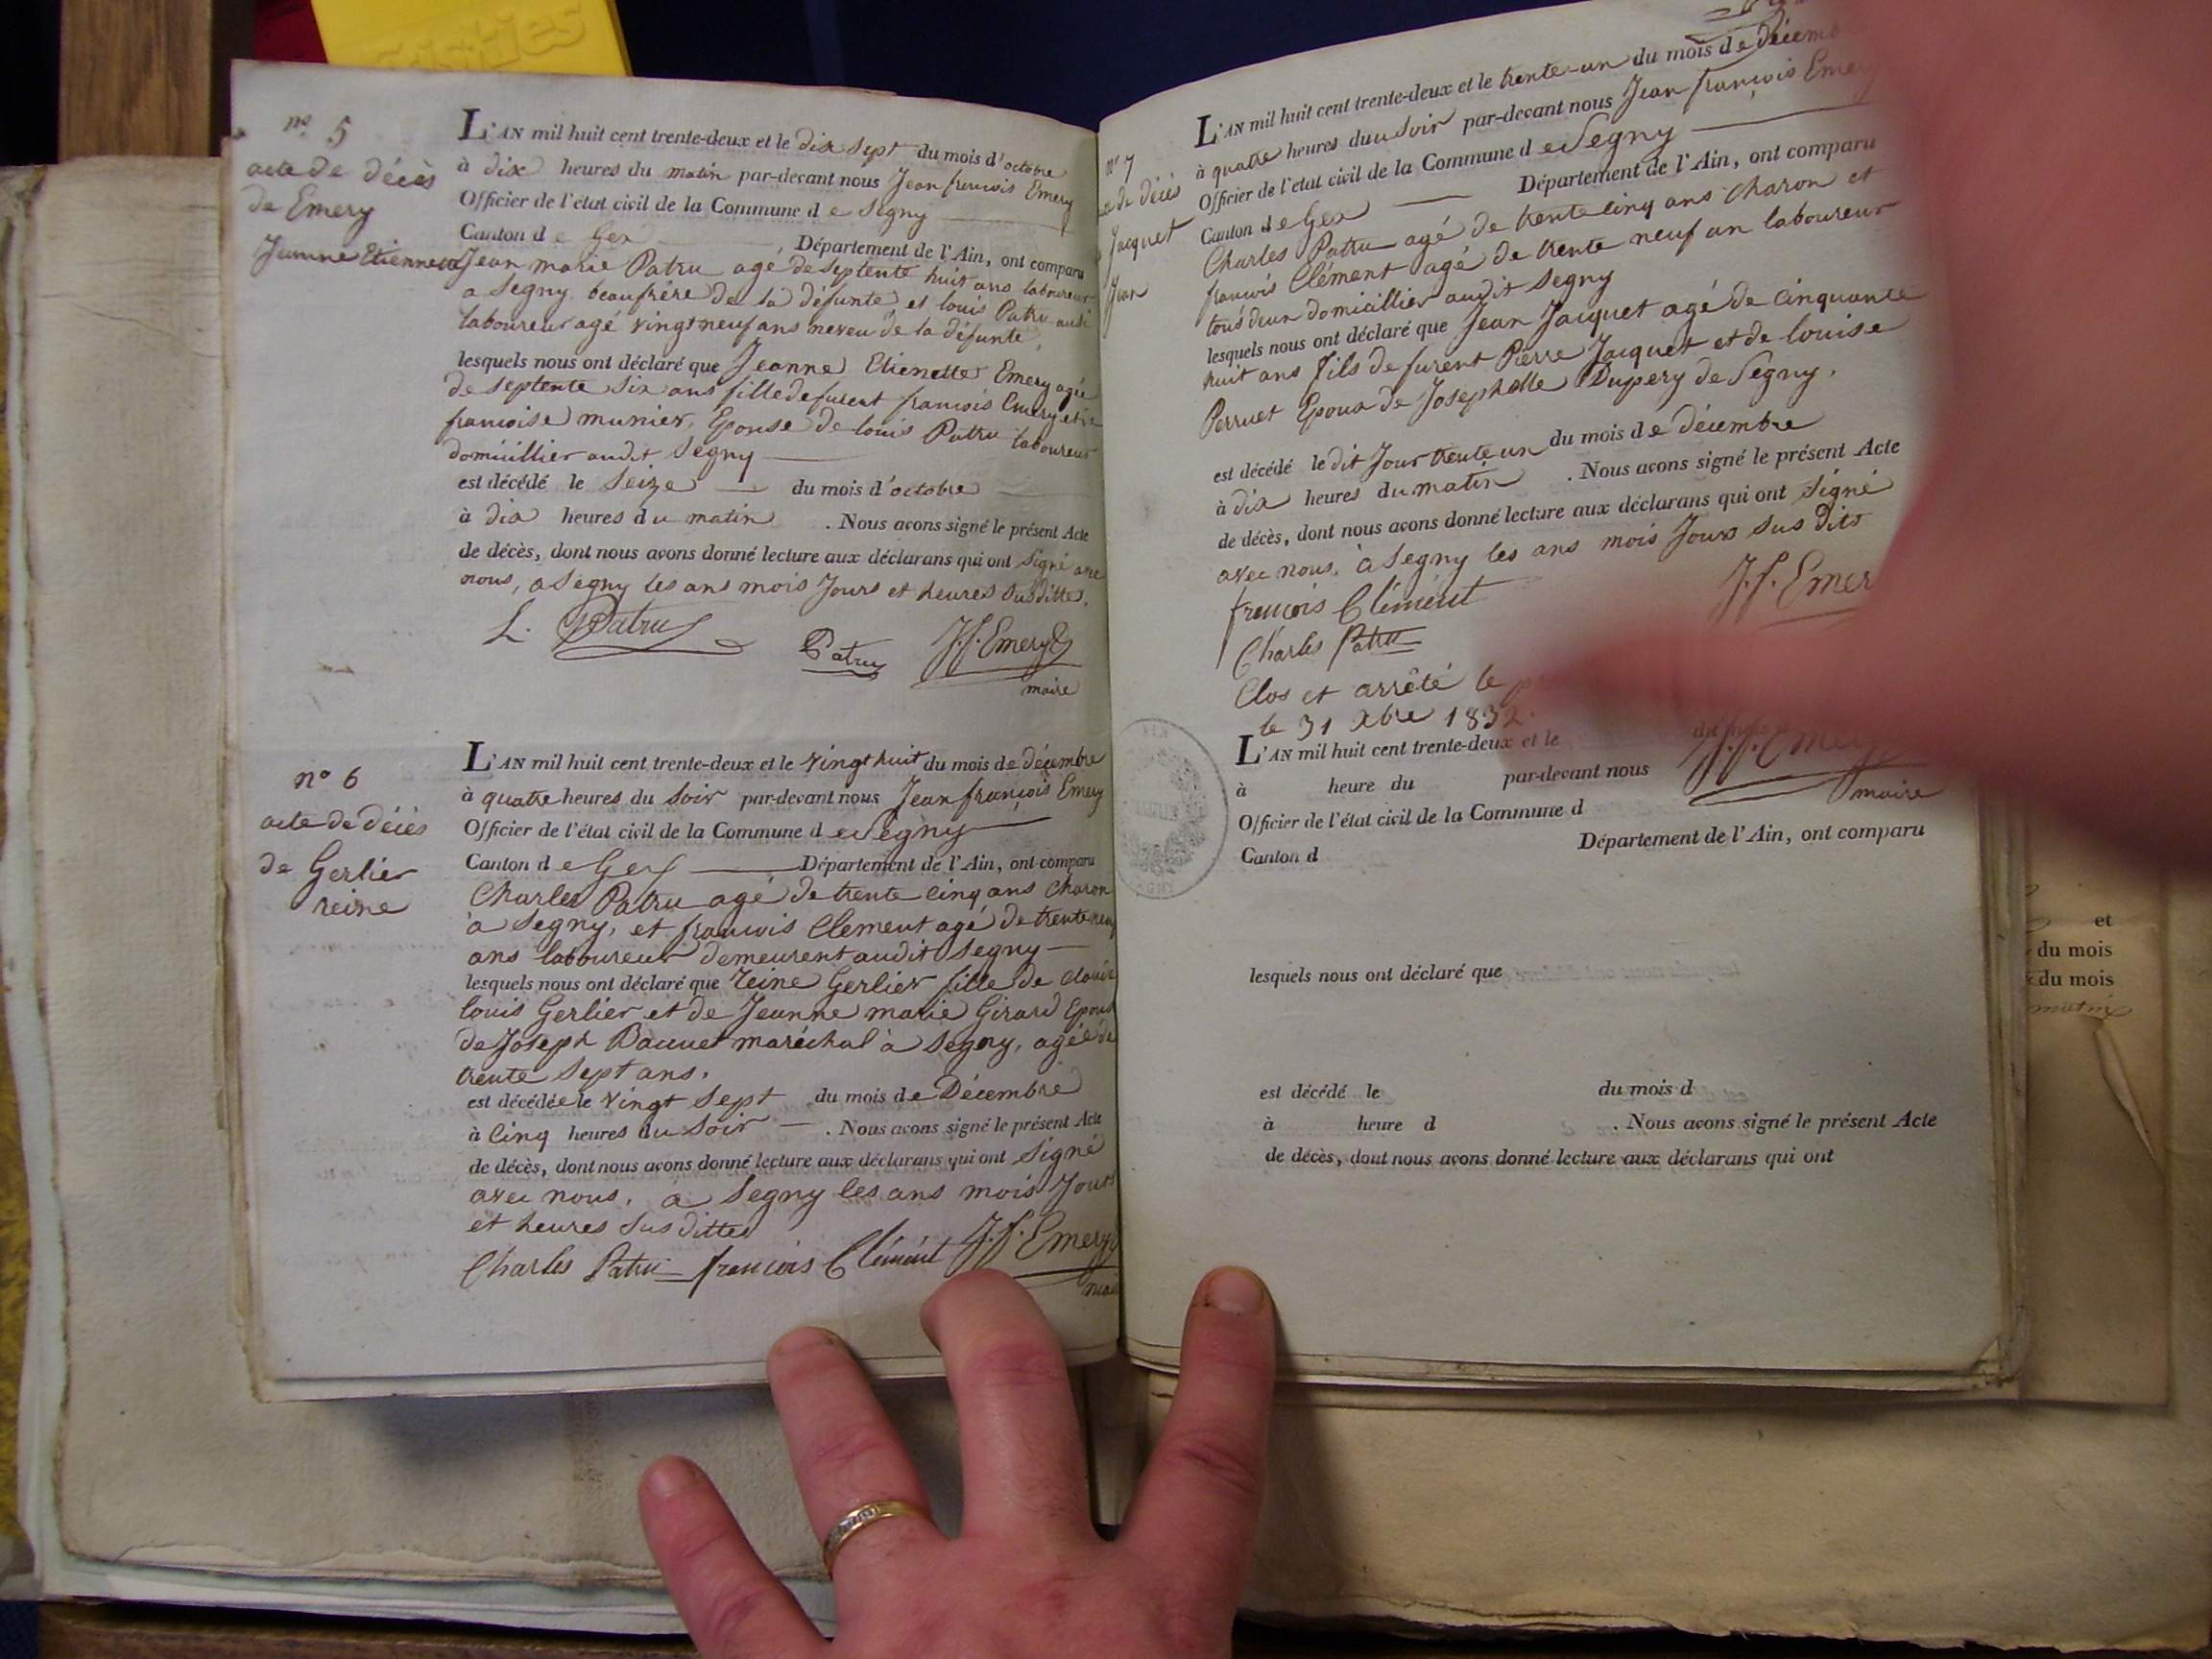 nº 5
acte de décès
de Emery
Jeanne Etiennette
L'AN mil huit cent trente-deux et le dix sept du mois d'octobre
à dix heures du matin par-devant nous Jean françois Emery
Officier de l'état civil de la Commune de Segny
Canton de Gex, Département de l'Ain, ont comparu
Jean marie Patru agé de septente huit ans laboureur
a Segny beaufrère de la défunte et louis Patru aussi
laboureur agé vingt neuf ans neveu de la défunte,
lesquels nous ont déclaré que Jeanne Etienette Emery agée
de septente six ans fille de furent françois Emery et de
françoise munier, Epouse de louis Patru laboureur
domicillier audit Segny
est décédé le Seize du mois d'octobre
à dix heures du matin. Nous avons signé le présent Acte
de décès, dont nous avons donné lecture aux déclarans qui ont signé avec
nous, a Segny les ans mois Jours et heures susdittes.
L. Patru Patru J.f. Emery
maire
nº 6
acte de décès
de Gerlier
reine
L'AN mil huit cent trente-deux et le vingt huit du mois de décembre
à quatre heures du soir par-devant nous Jean françois Emery
Officier de l'état civil de la Commune de Segny
Canton de Gex Département de l'Ain, ont comparu
Charles Patru agé de trente cinq ans charon
à Segny, et françois Clement agé de trente neuf
ans laboureur demeurent audit Segny
lesquels nous ont déclaré que reine Gerlier fille de
louis Gerlier et de Jeanne marie Girard Epouse
de Joseph maréchal à Segny, agée de
trente sept ans.
est décédée le vingt sept du mois de Décembre
à cinq heures du soir. Nous avons signé le présent Acte
de décès, dont nous avons donné lecture aux déclarans qui ont signé
avec nous, a Segny les ans mois Jours
et heures susdittes
Charles Patru françois Clément J.f. Emery
maire
nº 7
de décès
Jacquet
Jean
L'AN mil huit cent trente-deux et le trente-un du mois de décemb
à quatre heures du soir par-devant nous Jean françois Emery
Officier de l'etat civil de la Commune de Segny
Canton de Gex Département de l'Ain, ont comparu
Charles Patru agé de trente cinq ans charon et
françois Clément agé de trente neuf an laboureur
tous deux domicillier audit Segny
lesquels nous ont déclaré que Jean Jacquet agé de cinquante
huit ans fils de furent Pierre Jacquet et de louise
Perruet Epoux de Josephette Dupery de Segny.
est décédé le dit Jour trente un du mois de décembre
à dix heures du matin. Nous avons signé le présent Acte
de décès, dont nous avons donné lecture aux déclarans qui ont signé
avec nous, à Segny les ans mois Jours sus dits
françois Clément J.f. Emer
Charles Patru
Clos et arrêté le
le 31 xbre 1832.
J.f. Emery
maire
L'AN mil huit cent trente-deux et le
à heure du par-devant nous
Officier de l'état civil de la Commune d
Canton d Département de l'Ain, ont comparu
lesquels nous ont déclaré que
est décédé le du mois d
à heure d. Nous avons signé le présent Acte
de décès, dont nous avons donné lecture aux déclarans qui ont
et
du mois
du mois